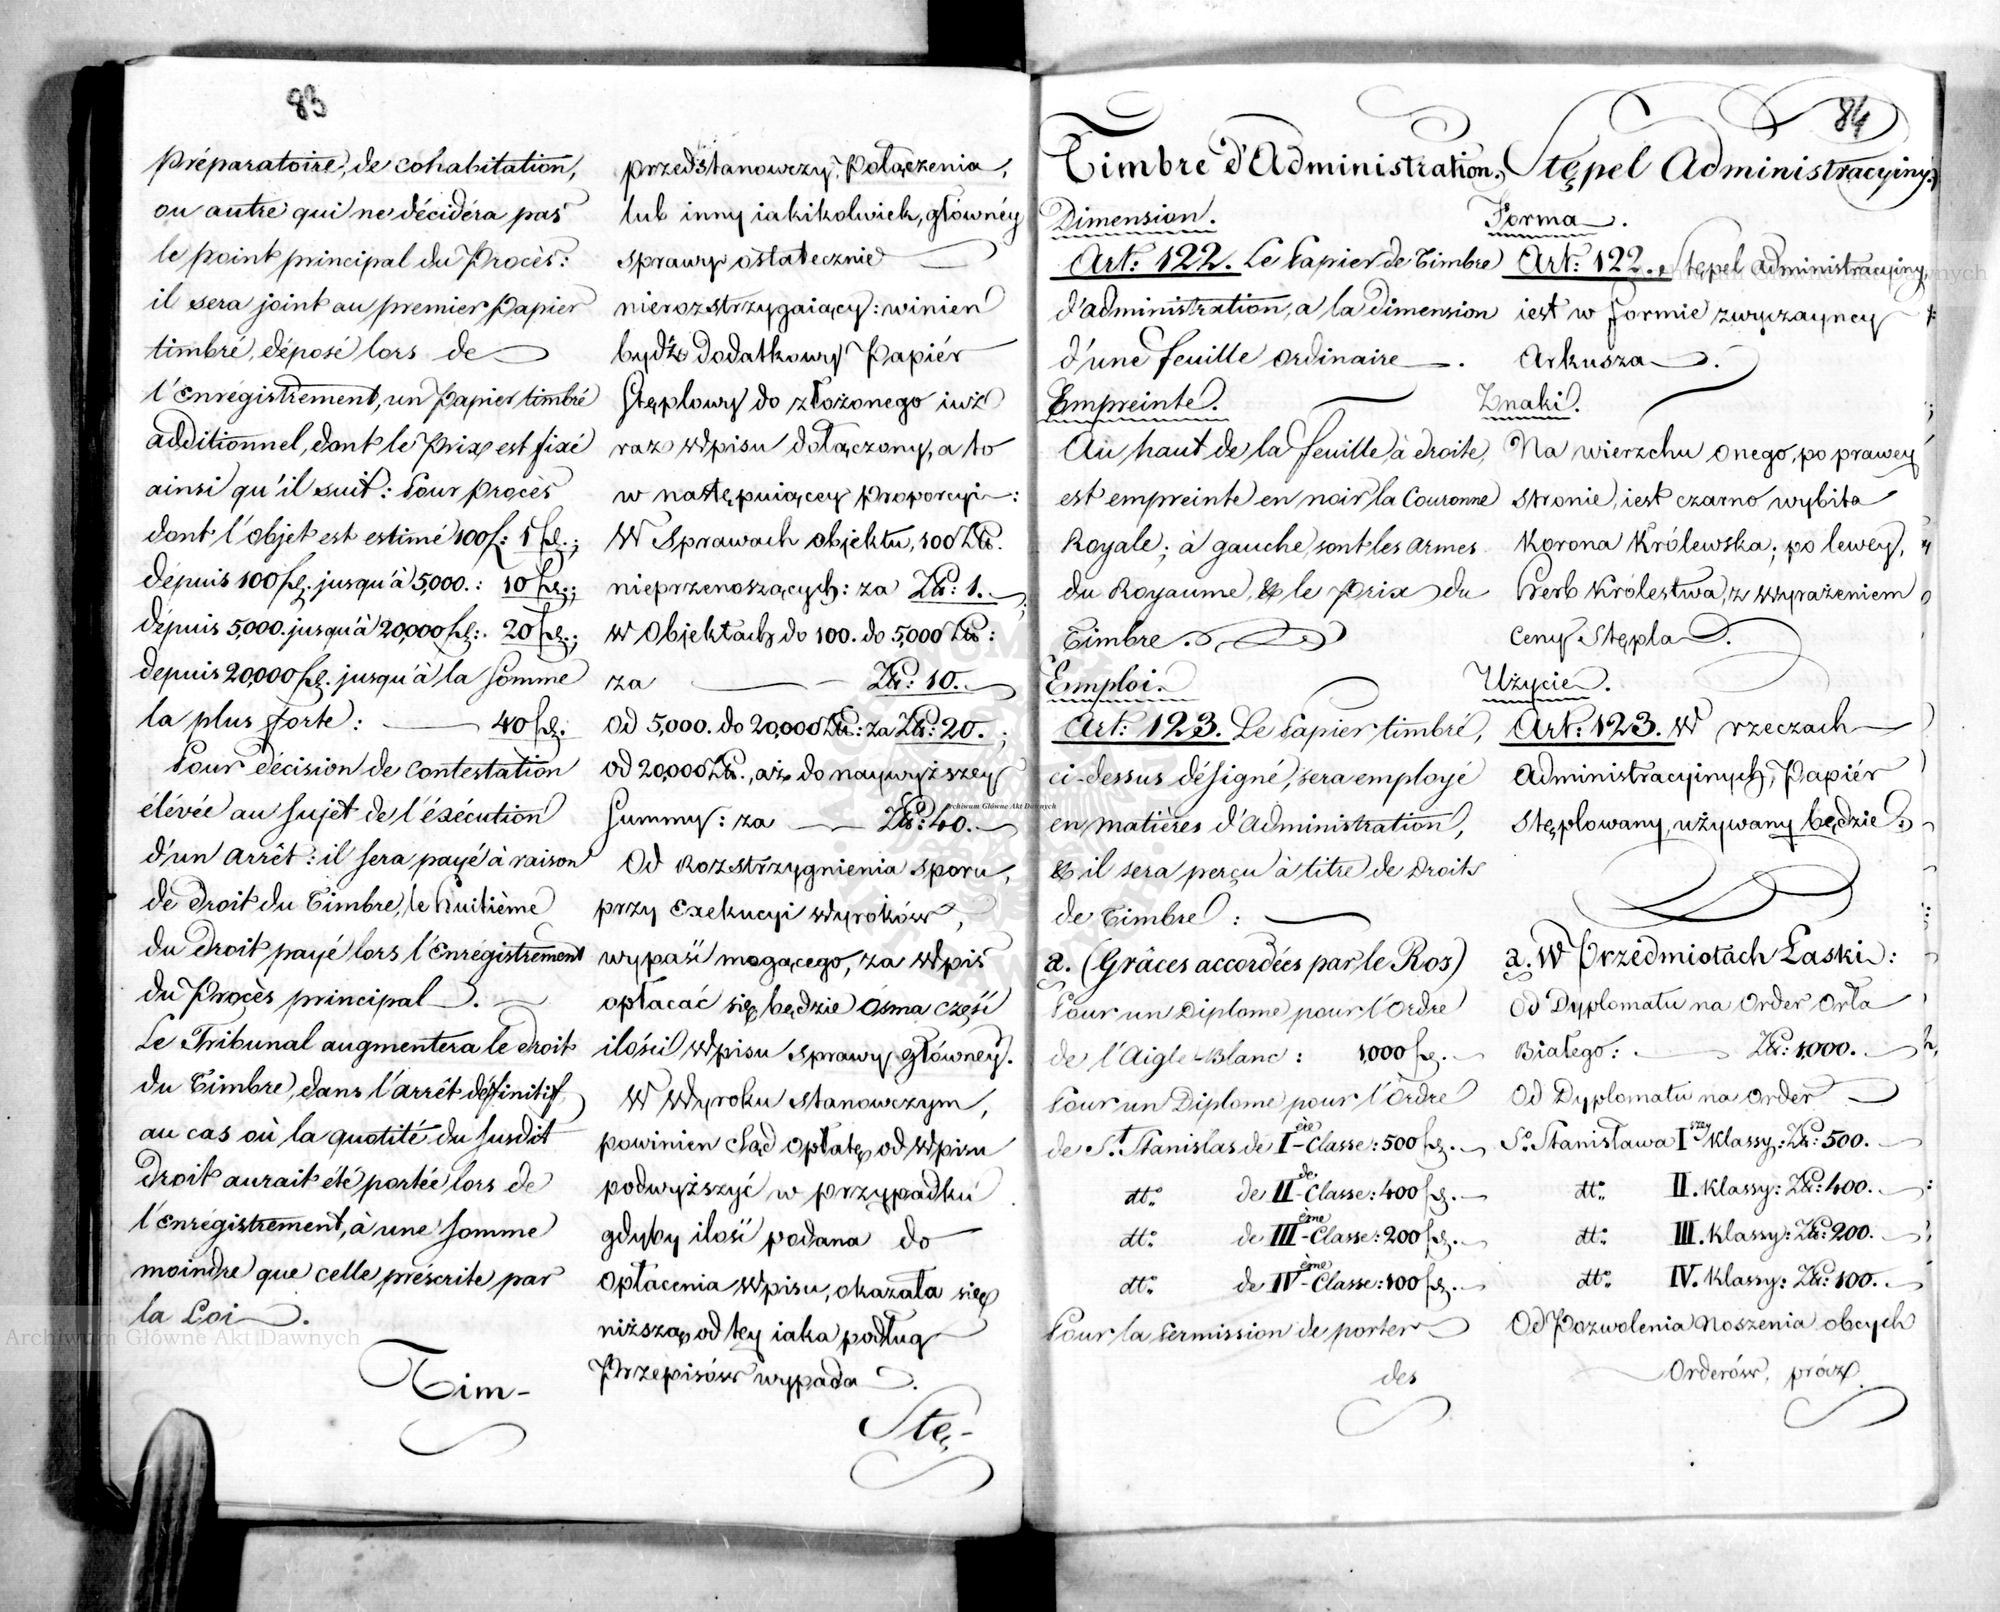 83
préparatoire, de cohabitation,
ou autre qui ne décidéra pas
le point principal du Procès:
il sera joint au premier Papier
timbré, déposé lors de
l'Enrégistrement, un Papier timbré
additionnel, dont le Prix est fixé
ainsi qu'il suit: Pour Procès
dont l'objet est estimé 100 f: 1 fl.;
dépuis 100 fl. jusqu'à 5,000.: 10 fl.;
dépuis 5,000. jusqu'à 20,000 fl.: 20 fl.;
depuis 20,000 fl. jusqu'à la Somme
la plus forte: 40 fl.
Pour décision de contestation
élévée au sujet de l'éxécution
d'un Arrêt: il sera payé à raison
de droit du Timbre, le huitième
du droit payé lors l'Enrégistrement
du Procès principal.
Le Tribunal augmentera le droit
du Timbre, dans l'arrêt définitif,
au cas où la quotité du susdit
droit aurait été portée lors de
l'Enrégistrement, à une Somme
moindre que celle préscrite par
la Loi.
Tim-
przedstanowczy, Połączenia,
lub inny iakikolwiek, główney
sprawy ostatecznie
nierozstrzygaiący: winien
bydź dodatkowy Papiér
Stęplowy do złożonego iuż
raz wpisu dołączony, a to
w następuiącey Proporcyi:
W Sprawach objektu, 100 Złł.
nieprzenoszących: za Złł: 1.
w Objektach do 100. do 5,000 Złł:
za Złł: 10.
Od 5,000. do 20,000 Złł: za Złł: 20.;
Od 20,000 Złł., aż do naywyższey
Summy: za Złł: 40.
Od Rozstrzygnienia sporu,
przy Exekucyi wyroków,
wypaść mogącego, za wpis
opłacać się będzie Osma część
ilości wpisu Sprawy główney.
W Wyroku stanowczym,
powinien Sąd opłatę od Wpisu
podwyższyć w przypadku
gdyby ilość podana do
Opłacenia Wpisu, okazała się
niższą, od tey iaka podług
Przepisów wypada.
Stę-
84
Timbre d'Administration.
Dimension.
Art: 122. Le Papier de Timbre
d'administration, a la dimension
d'une feuille ordinaire.
Empreinte.
Au haut de la feuille, à droite,
est empreinte en noir la Couronne
Royale; à gauche, sont les Armes
du Royaume, & le Prix du
Timbre.
Emploi.
Art: 123. Le Papier timbré,
ci-dessus désigné, sera employé
en matières d'administration,
& il sera perçu à titre de Droits
de Timbre:
a. (Grâces accordées par le Roi)
Pour un Diplome pour l'Ordre
de l'Aigle-Blanc: 1000 fl.
Pour un Diplome pour l'Ordre
de St. Stanislas de Iere Classe: 500 fl.
dtto. de IIde Classe: 400 fl.
dtto. de IIIème Classe: 200 fl.
dtto. de IVème Classe: 100 fl.
Pour la Permission de porter
des
Stępel Administracyiny.
Forma.
Art: 122. Stępel Administracyiny,
iest w Formie zwyczayney
Arkusza.
Znaki.
Na wierzchu onego, po prawey
stronie, iest czarno wybita
Korona Królewska; po lewey,
Herb Królestwa, z wyrażeniem
Ceny Stępla.
Użycie.
Art: 123. W rzeczach
Administracyinych, Papiér
Stęplowany, używany będzie:
a. W Przedmiotach Łaski:
Od Dyplomatu na Order Orła
Białego: Złł: 1,000.
Od Dyplomatu na Order
So. Stanisława Iszey Klassy: Złł: 500.
dtto. II. Klassy: Złł: 400.
dtto. III. Klassy: Złł: 200.
dtto. IV. Klassy: Złł: 100.
Od Pozwolenia Noszenia obcych
Orderów, prócz
Archiwum Główne Akt Dawnych
Archiwum Główne Akt Dawnych